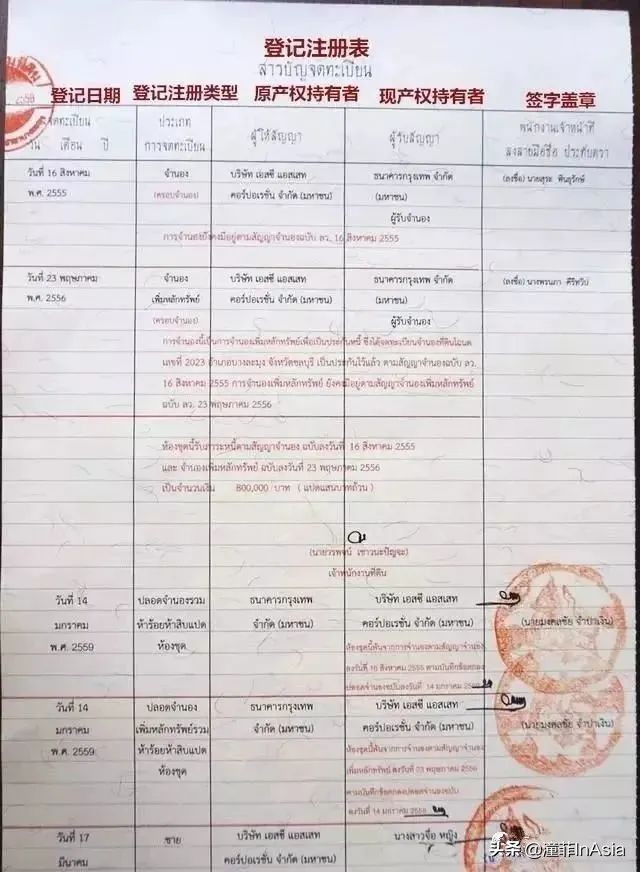 登记注册表
สารบัญจดทะเบียน
登记日期 登记注册类型 原产权持有者 现产权持有者 签字盖章
จดทะเบียน ประเภท ผู้ให้สัญญา ผู้รับสัญญา พนักงานเจ้าหน้าที่
วัน เดือน ปี การจดทะเบียน ลงลายมือชื่อ ประทับตรา
วันที่ 16 สิงหาคม จำนอง บริษัท เอสซี แอสเสท ธนาคารกรุงเทพ จำกัด (ลงชื่อ) นายสุระ
พ.ศ. 2555 (ครอบจำนอง) คอร์ปอเรชั่น จำกัด (มหาชน) (มหาชน)
ผู้รับจำนอง
การจำนองยังคงมีอยู่ตามสัญญาจำนองฉบับ ลว. 16 สิงหาคม 2555
วันที่ 23 พฤษภาคม จำนอง บริษัท เอสซี แอสเสท ธนาคารกรุงเทพ จำกัด (ลงชื่อ)
พ.ศ. 2556 เพิ่มหลักทรัพย์ คอร์ปอเรชั่น จำกัด (มหาชน) (มหาชน)
(ครอบจำนอง) ผู้รับจำนอง
การจำนองนี้เป็นการจำนองเพิ่มหลักทรัพย์เพื่อเป็นประกันหนี้ ซึ่งได้จดทะเบียนจำนองที่ดินโฉนด
เลขที่ 2023 อำเภอบางละมุง จังหวัดชลบุรี เป็นประกันไว้แล้ว ตามสัญญาจำนองฉบับ ลว.
16 สิงหาคม 2555 การจำนองเพิ่มหลักทรัพย์ ยังคงมีอยู่ตามสัญญาจำนองเพิ่มหลักทรัพย์
ฉบับ ลว. 23 พฤษภาคม 2556
ห้องชุดนี้รับภาระหนี้ตามสัญญาจำนอง ฉบับลงวันที่ 16 สิงหาคม 2555
และ จำนองเพิ่มหลักทรัพย์ ฉบับลงวันที่ 23 พฤษภาคม 2556
เป็นจำนวนเงิน 800,000 บาท (แปดแสนบาทถ้วน)
เจ้าพนักงานที่ดิน
วันที่ 14 ปลอดจำนองรวม ธนาคารกรุงเทพ บริษัท เอสซี แอสเสท
มกราคม ห้าร้อยห้าสิบแปด จำกัด (มหาชน) คอร์ปอเรชั่น จำกัด (มหาชน) (นายมงคลชัย จำปาเงิน)
พ.ศ. 2559 ห้องชุด ห้องชุดนี้พ้นจากการจำนองตามสัญญาจำนอง
ลงวันที่ 16 สิงหาคม 2555 ตามบันทึกข้อตกลง
ปลอดจำนองฉบับลงวันที่ 14 มกราคม 2559
วันที่ 14 ปลอดจำนอง ธนาคารกรุงเทพ บริษัท เอสซี แอสเสท
มกราคม เพิ่มหลักทรัพย์รวม จำกัด (มหาชน) คอร์ปอเรชั่น จำกัด (มหาชน) (นายมงคลชัย จำปาเงิน)
พ.ศ. 2559 ห้าร้อยห้าสิบแปด ห้องชุดนี้พ้นจากการจำนองตามสัญญาจำนอง
ห้องชุด เพิ่มหลักทรัพย์ ลงวันที่ 23 พฤษภาคม 2556
ตามบันทึกข้อตกลงปลอดจำนองฉบับ
ลงวันที่ 14 มกราคม 2559
วันที่ 17 ขาย บริษัท เอสซี แอสเสท นางสาวจื่อ หญิง
มีนาคม คอร์ปอเรชั่น จำกัด (มหาชน)
头条 @潼菲InAsia